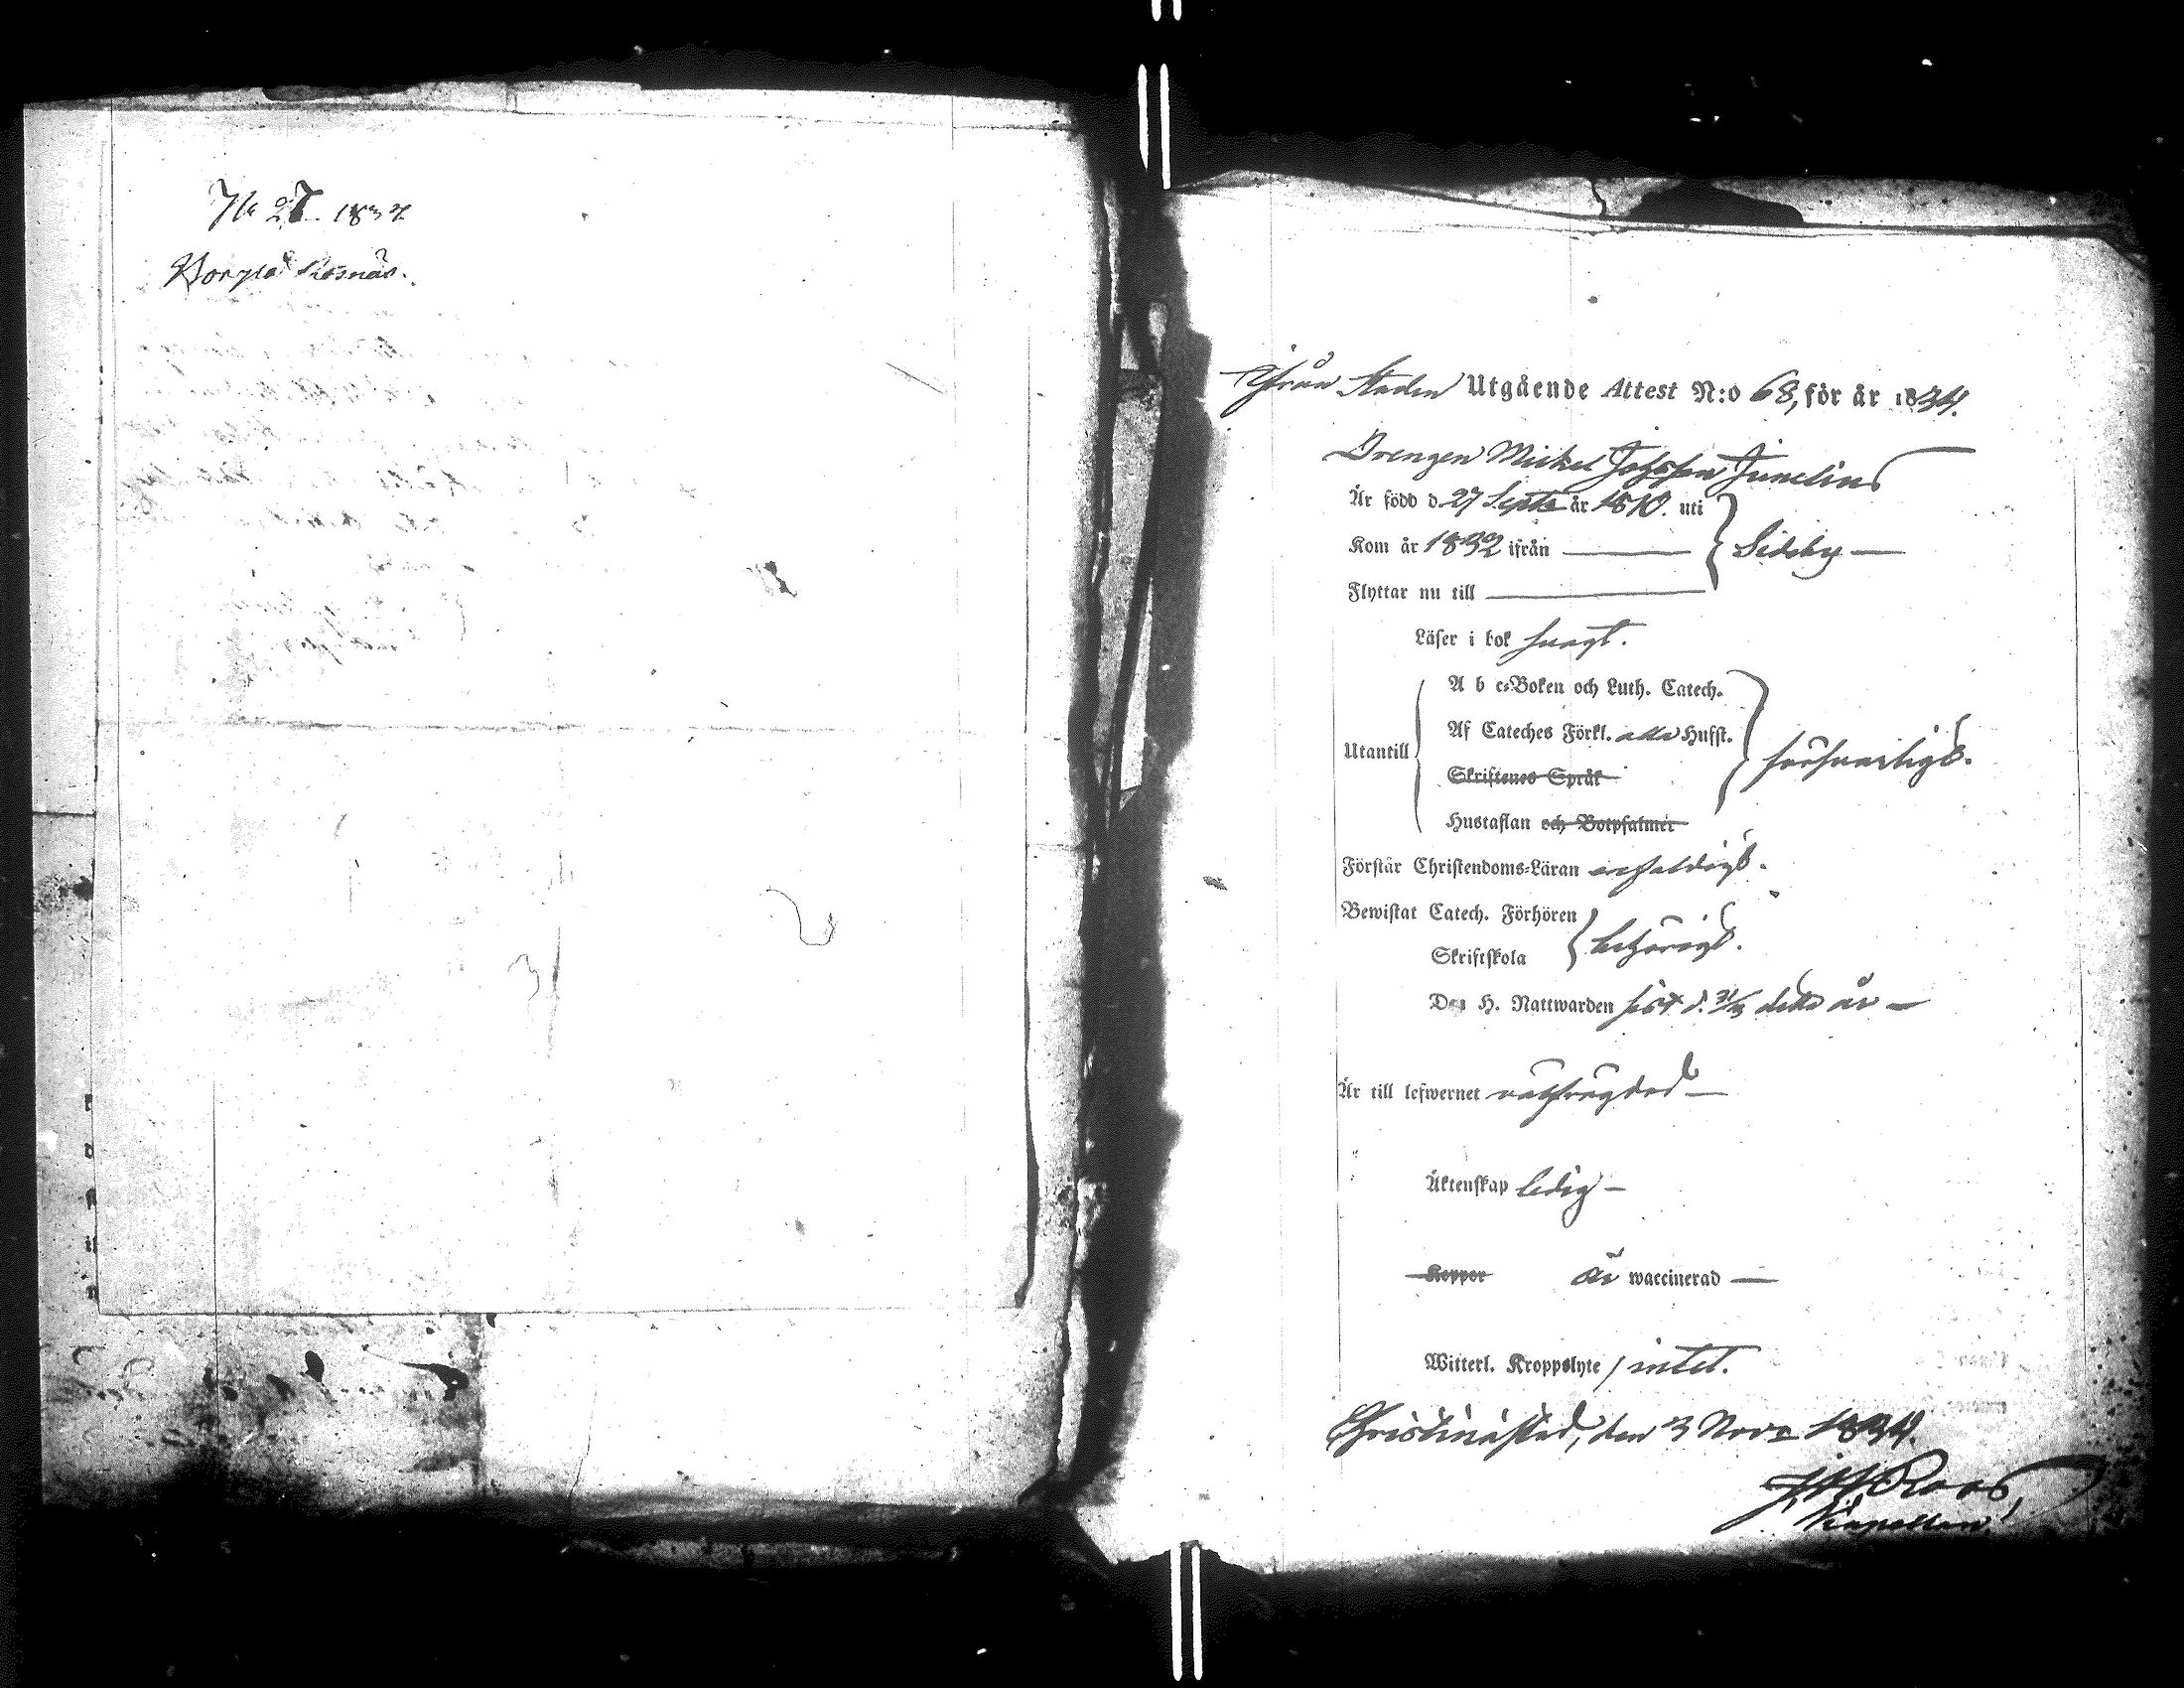 No 27. 1834
Ifrån Staden Utgående Attest N:o 68, för år 1834.
Drengen Mickel Johsson Junelius
Är född d. 27 Septr år 1810. uti
Kom år 1832 ifrån — Sideby —
Flyttar nu till —
Läser i bok svagt.
A b c-Boken och Luth. Catech.
Af Cateches Förkl. alla Hufst.
Utantill försvarligt.
Skriftenes Språk
Hustaflan och Botpsalmer
Förstår Christendoms-Läran enfaldigt.
Bewistat Catech. Förhören
Skriftskola behörigt.
Den H. Nattwarden sist d. 31/3 detta år —
Är till lefwernet välfrägdad —
Äktenskap ledig —
Koppor är waccinerad —
Witterl. Kroppslyte / intet.
Christinæstad, den 3 Novr 1834.
Roos,
Kapellan.